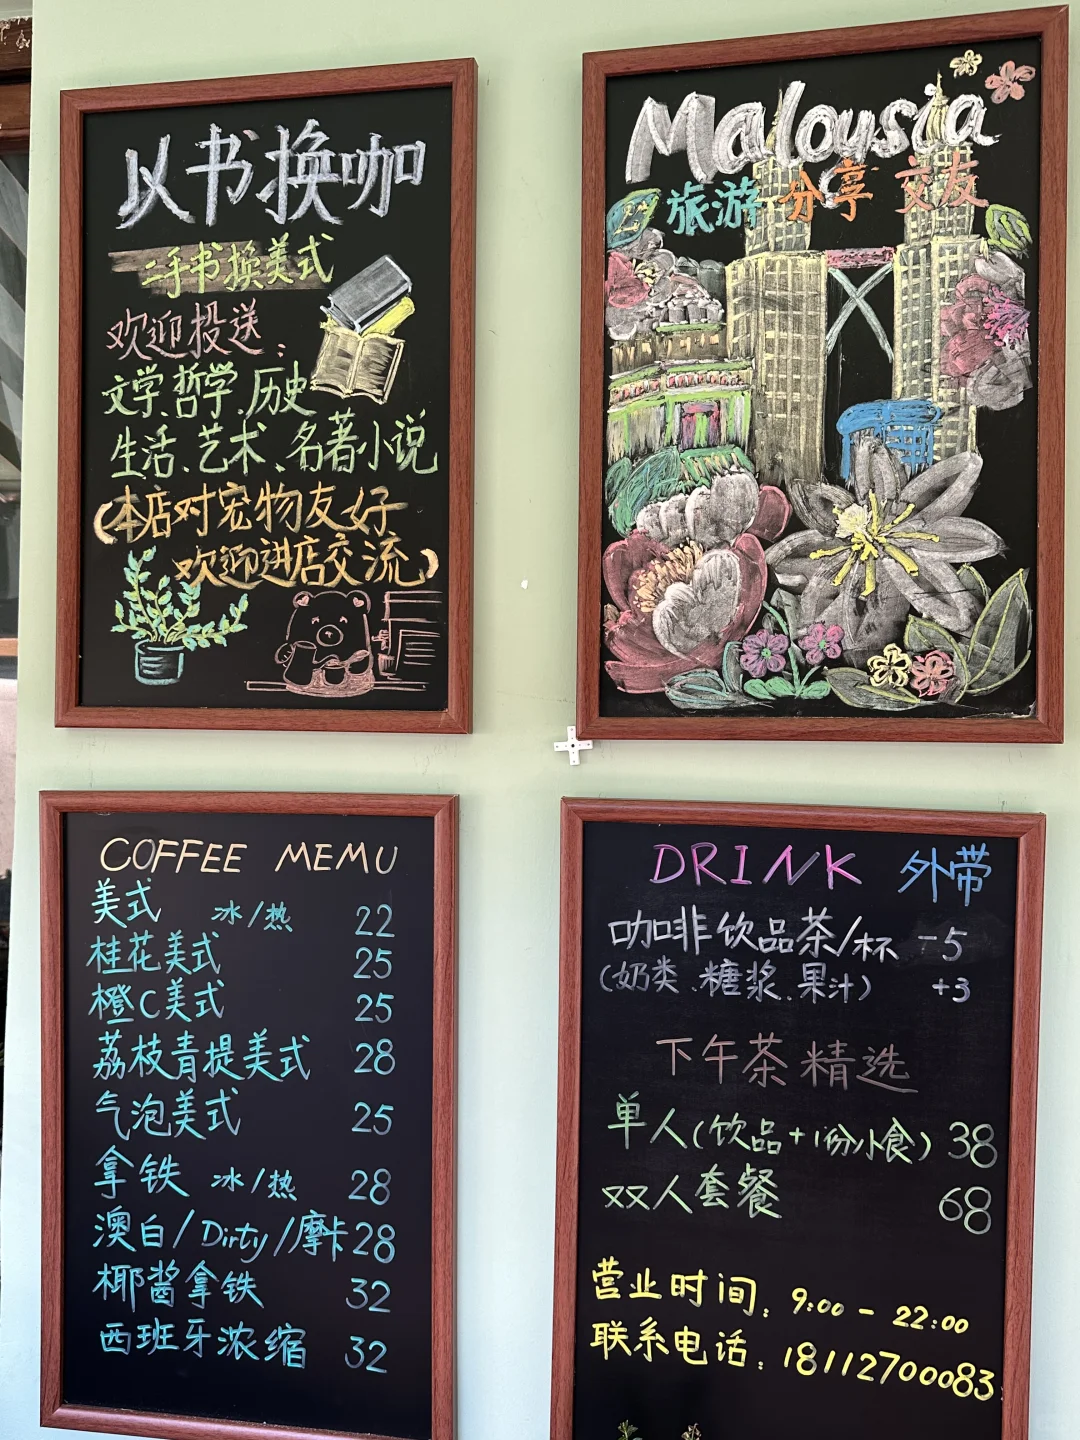 以书换咖
二手书换美式
欢迎投送：
文学、哲学、历史
生活、艺术、名著小说
（本店对宠物友好
欢迎进店交流）
Malaysia
旅游 分享 交友
COFFEE MEMU
美式 冰/热 22
桂花美式 25
橙C美式 25
荔枝青提美式 28
气泡美式 25
拿铁 冰/热 28
澳白/Dirty/摩卡 28
椰酱拿铁 32
西班牙浓缩 32
DRINK 外带
咖啡饮品茶/杯 -5
（奶类、糖浆、果汁） +3
下午茶精选
单人（饮品+1份小食） 38
双人套餐 68
营业时间：9:00-22:00
联系电话：18112700083